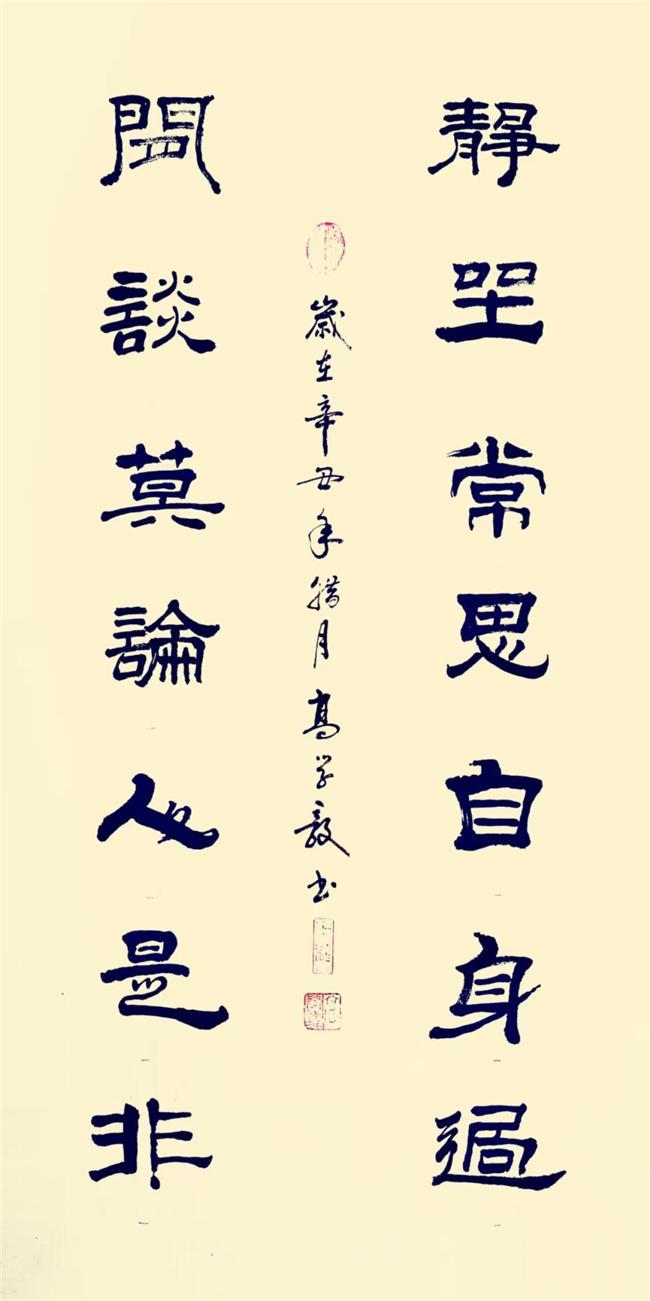 靜坐常思自身過
閒談莫論人是非
歲在辛丑年腊月高学毅书